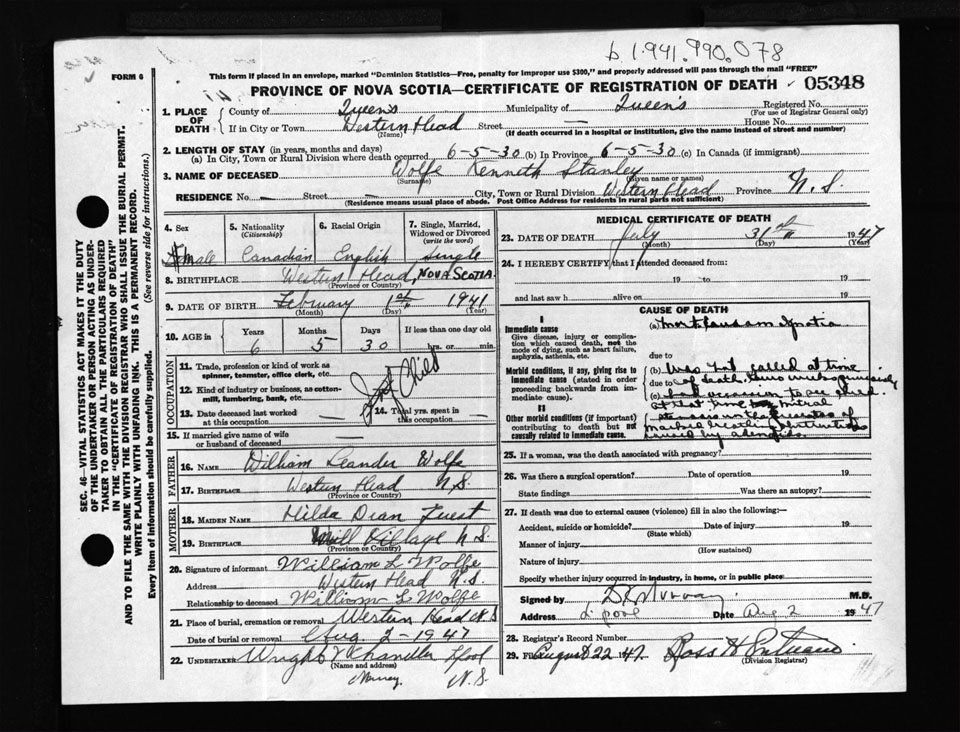 b 1.941.990.078
FORM 6
This form if placed in an envelope, marked "Dominion Statistics—Free, penalty for improper use $300," and properly addressed will pass through the mail "FREE"
PROVINCE OF NOVA SCOTIA—CERTIFICATE OF REGISTRATION OF DEATH 05348
1. PLACE OF DEATH
County of Queens Municipality of Queens Registered No.
(For use of Registrar General only)
If in City or Town Western Head Street — House No.
(Name) (If death occurred in a hospital or institution, give the name instead of street and number)
2. LENGTH OF STAY (in years, months and days)
(a) In City, Town or Rural Division where death occurred 6-5-30 (b) In Province 6-5-30 (c) In Canada (if immigrant)
3. NAME OF DECEASED Wolfe Kenneth Stanley
(Surname) (Given name or names)
RESIDENCE No. — Street — City, Town or Rural Division Western Head Province N.S.
(Residence means usual place of abode. Post Office Address for residents in rural parts not sufficient)
4. Sex
5. Nationality (Citizenship)
6. Racial Origin
7. Single, Married, Widowed or Divorced (write the word)
male Canadian English single
8. BIRTHPLACE Western Head, NOVA SCOTIA.
(Province or Country)
9. DATE OF BIRTH February 1st 1941
(Month) (Day) (Year)
10. AGE in Years Months Days If less than one day old
6 5 30 hrs. or min.
OCCUPATION
11. Trade, profession or kind of work as spinner, teamster, office clerk, etc.
12. Kind of industry or business, as cotton-mill, lumbering, bank, etc.
Child
13. Date deceased last worked at this occupation
14. Total yrs. spent in this occupation
15. If married give name of wife or husband of deceased
FATHER
16. NAME William Leander Wolfe
17. BIRTHPLACE Western Head N.S.
(Province or Country)
MOTHER
18. MAIDEN NAME Hilda Dean
19. BIRTHPLACE Mill Village N.S.
(Province or Country)
20. Signature of informant William L Wolfe
Address Western Head N.S.
Relationship to deceased William L Wolfe
21. Place of burial, cremation or removal Western Head N.S
Date of burial or removal Aug. 2-1947
22. UNDERTAKER Wright & Chandler
(Name and address)
N.S.
MEDICAL CERTIFICATE OF DEATH
23. DATE OF DEATH July 31st 1947
(Month) (Day) (Year)
24. I HEREBY CERTIFY that I attended deceased from:
19 to 19
and last saw h alive on 19
CAUSE OF DEATH
I
Immediate cause
Give disease, injury or complication which caused death, not the mode of dying, such as heart failure, asphyxia, asthenia, etc.
(a)
due to
Morbid conditions, if any, giving rise to immediate cause (stated in order proceeding backwards from immediate).
(b) Was not called at time
due to of death.
(c)
II
Other morbid conditions (if important) contributing to death but not causally related to immediate cause.
caused by adenoids
25. If a woman, was the death associated with pregnancy?
26. Was there a surgical operation? Date of operation 19
State findings Was there an autopsy?
27. If death was due to external causes (violence) fill in also the following:—
Accident, suicide or homicide? Date of injury 19
(State which)
Manner of injury
(How sustained)
Nature of injury
Specify whether injury occurred in industry, in home, or in public place
Signed by M.D.
Address L'pool Date Aug 2 1947
28. Registrar's Record Number
29. Filed August 22 1947. Ross H
(Division Registrar)
SEC. 46—VITAL STATISTICS ACT MAKES IT THE DUTY
OF THE UNDERTAKER OR PERSON ACTING AS UNDER-
TAKER TO OBTAIN ALL THE PARTICULARS REQUIRED
IN THE "CERTIFICATE OF REGISTRATION OF DEATH"
AND TO FILE THE SAME WITH THE DIVISION REGISTRAR WHO SHALL ISSUE THE BURIAL PERMIT.
WRITE PLAINLY WITH UNFADING INK. THIS IS A PERMANENT RECORD.
Every item of information should be carefully supplied. (See reverse side for instructions.)